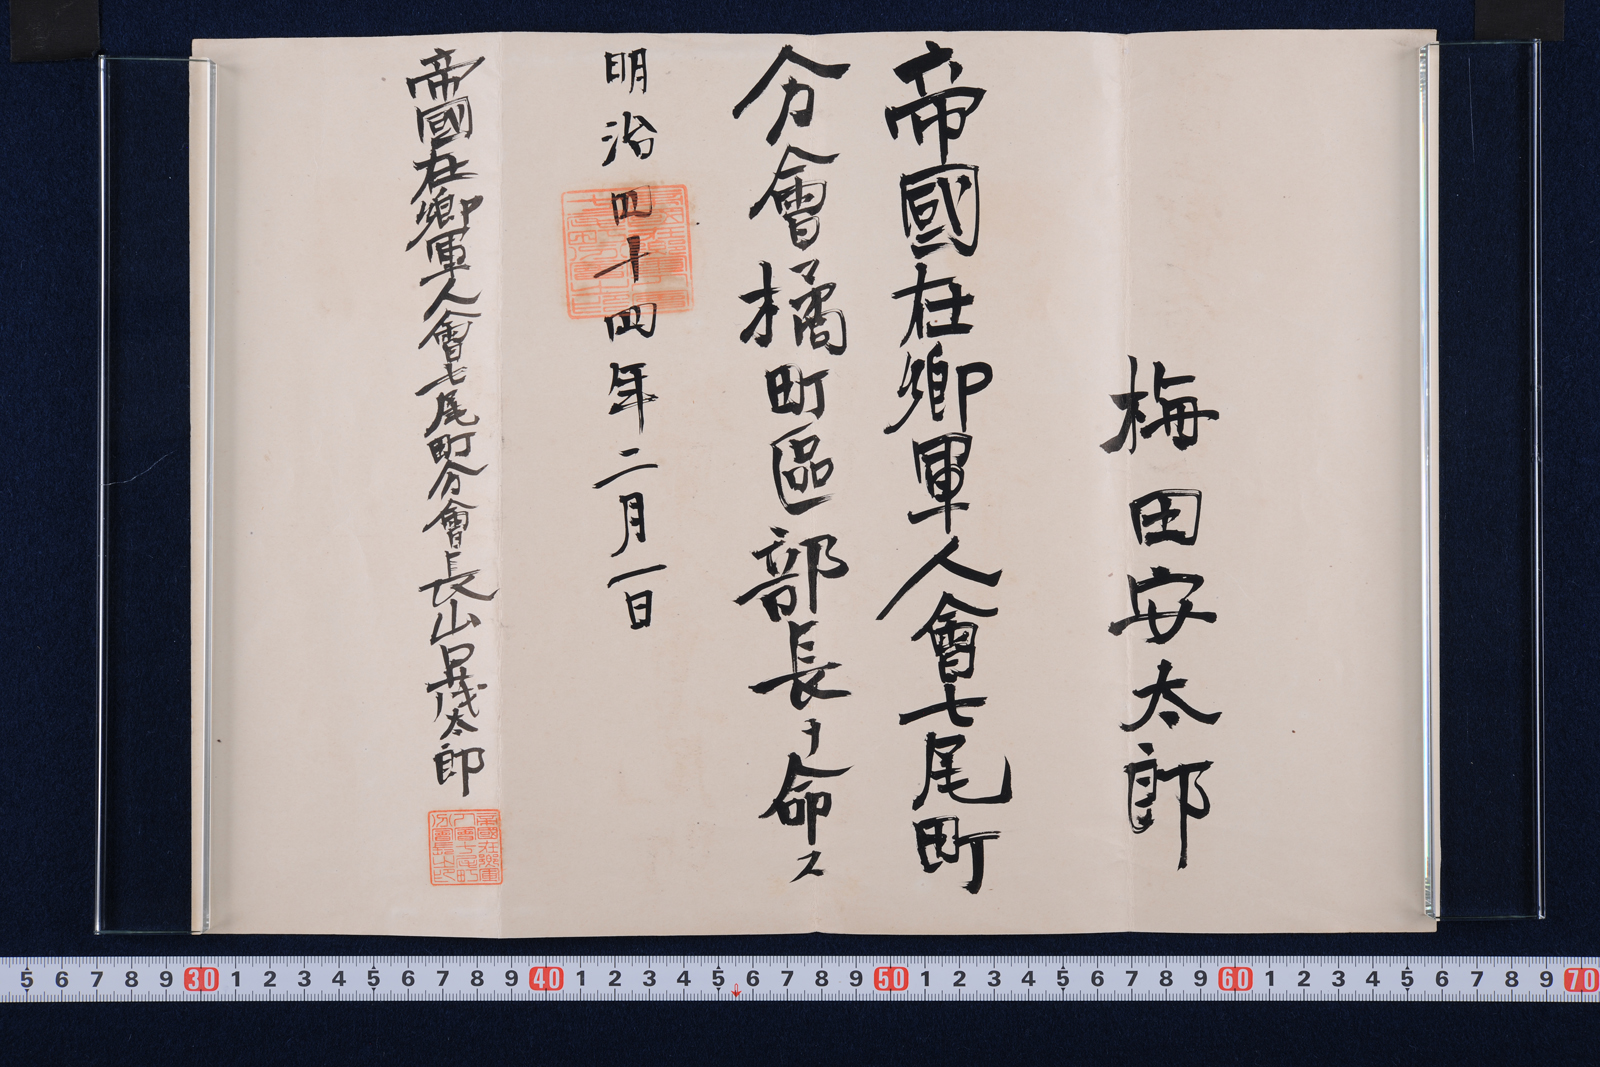 梅田安太郎
帝國在郷軍人會七尾町
分會橘町區部長ヲ命ス
明治四十四年二月一日
帝國在郷軍人會七尾町分會長山口茂太郎
帝國在郷軍
人會七尾町
分會長之印
5 6 7 8 9 30 1 2 3 4 5 6 7 8 9 40 1 2 3 4 5 6 7 8 9 50 1 2 3 4 5 6 7 8 9 60 1 2 3 4 5 6 7 8 9 70